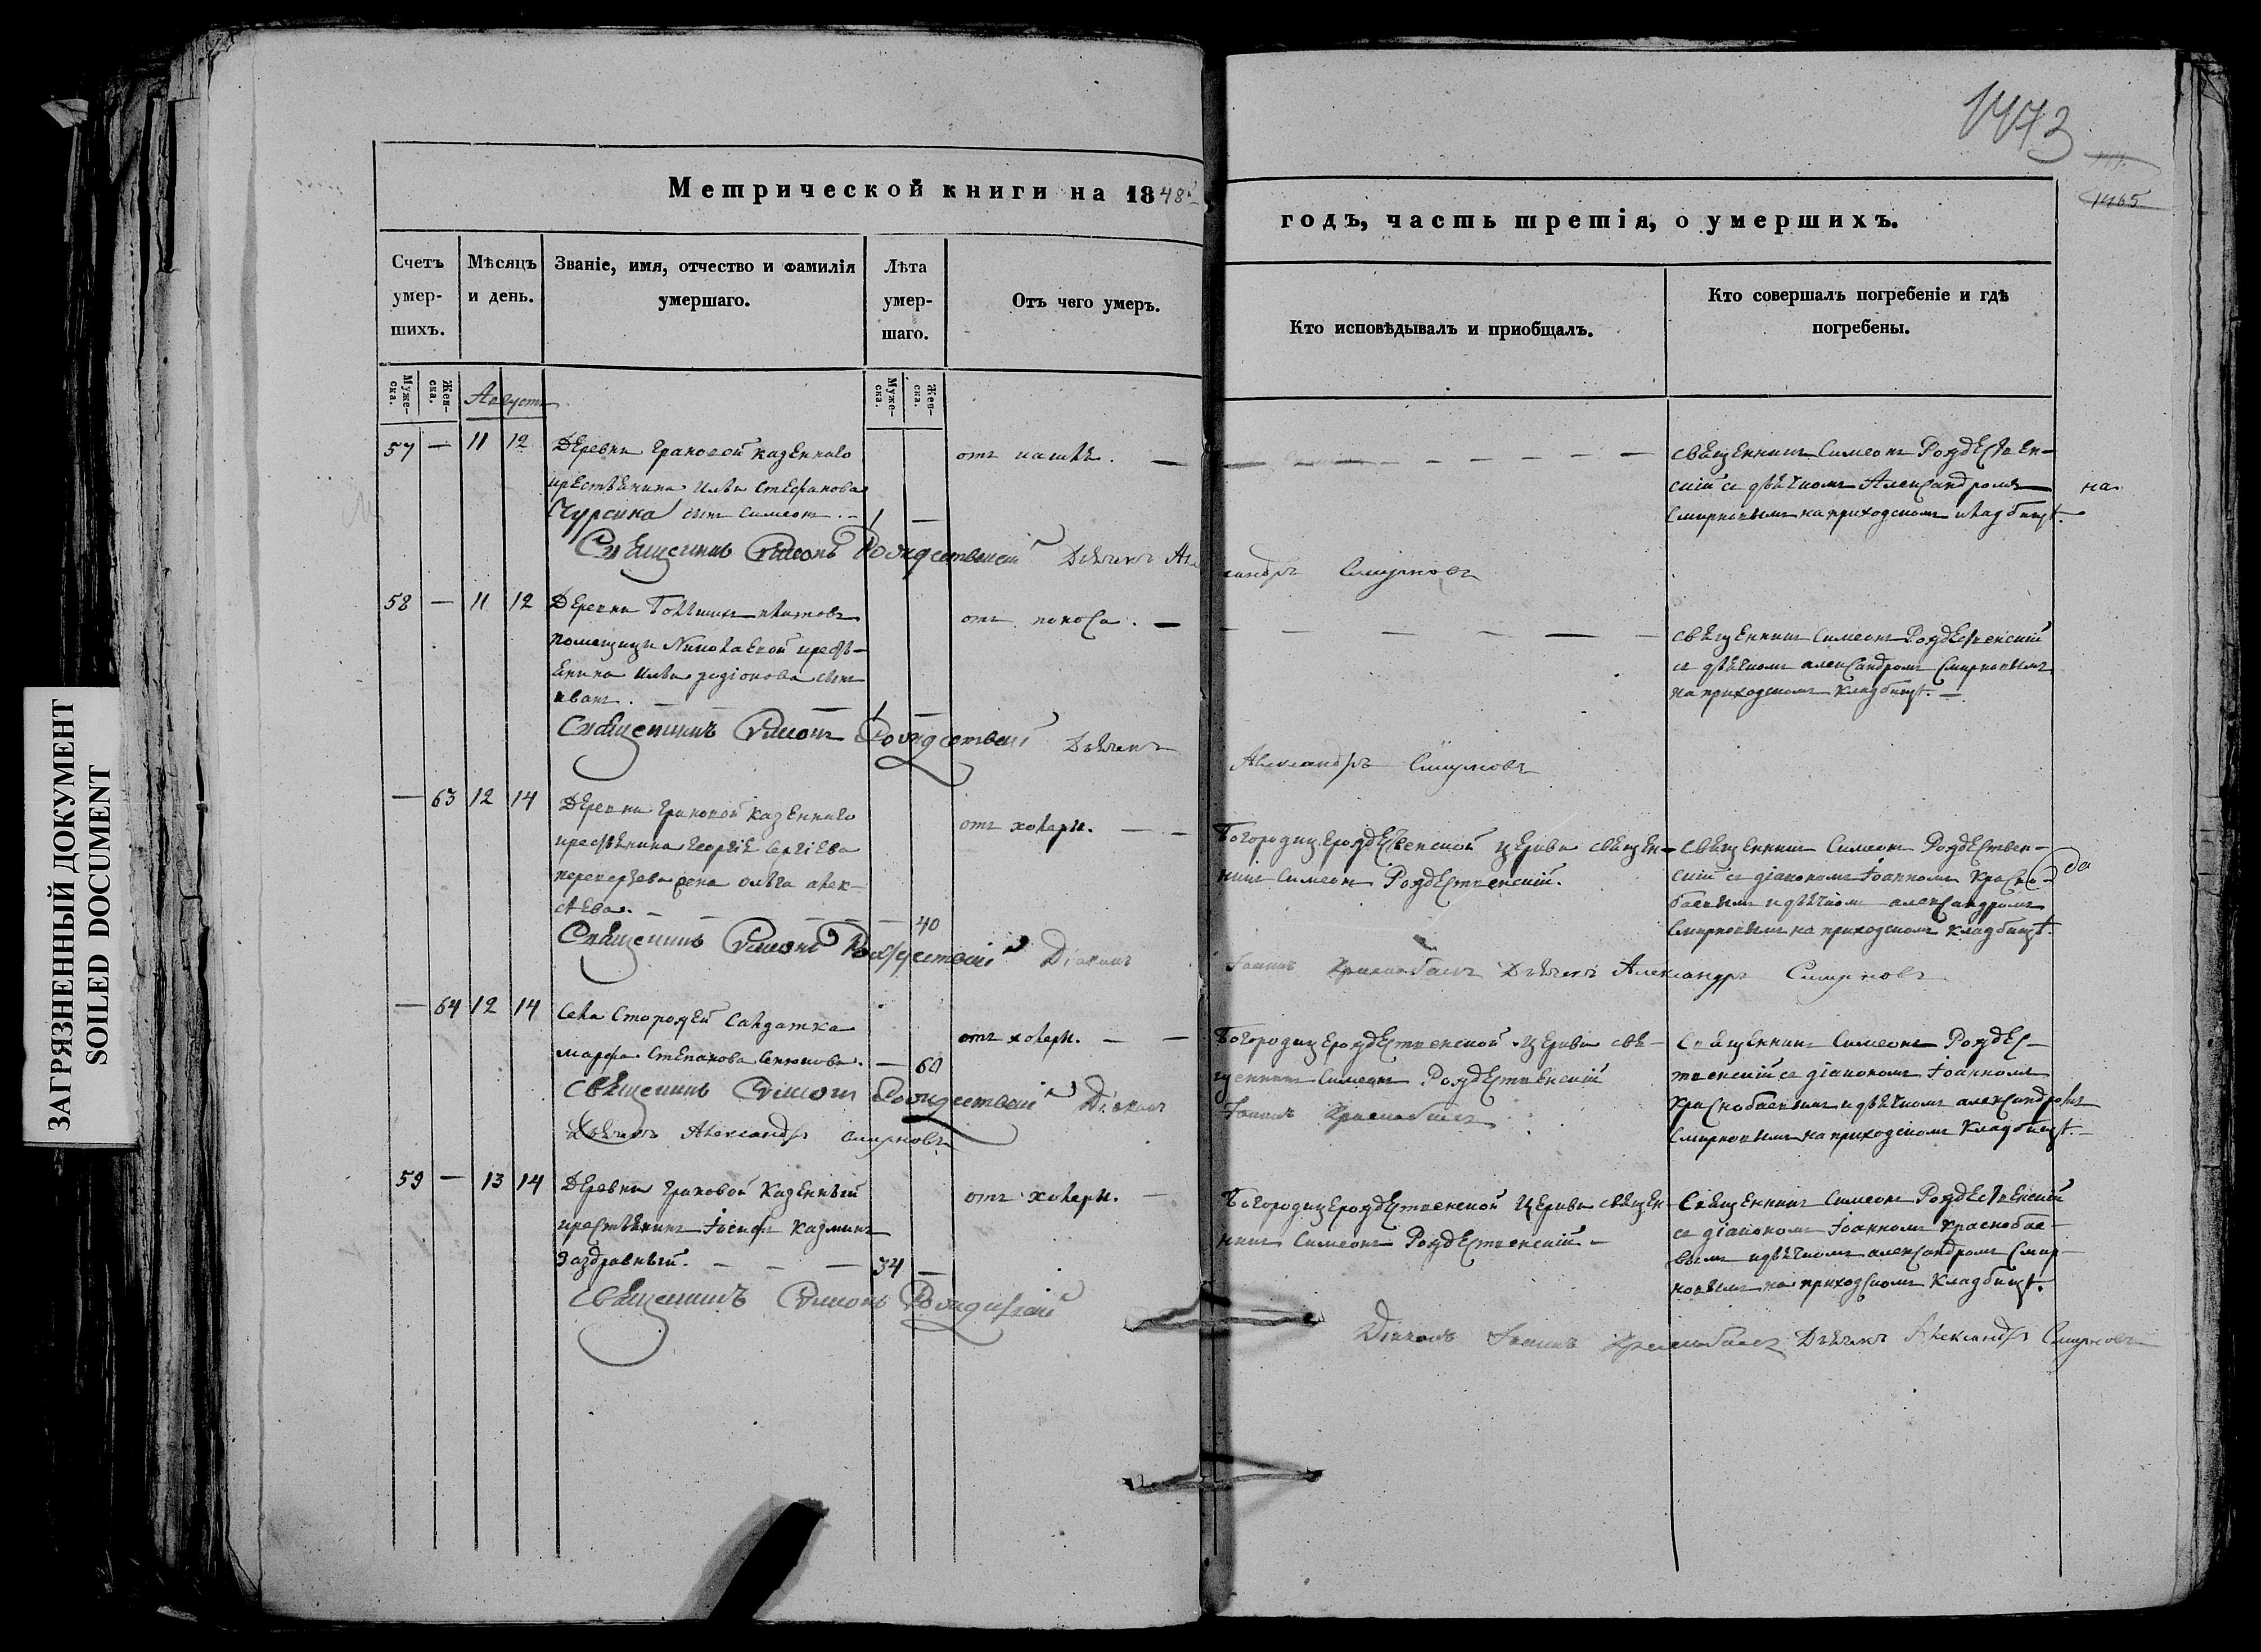 ЗАГРЯЗНЕННЫЙ ДОКУМЕНТ
SOILED DOCUMENT
1473
1465
Метрической книги на 1848й
годъ, часть третія, о умершихъ.
Счетъ умер-шихъ.
Мѣсяцъ и день.
Званіе, имя, отчество и фамилія умершаго.
Лѣта умер-шаго.
Отъ чего умеръ.
Кто исповѣдывалъ и пріобщалъ.
Кто совершалъ погребеніе и гдѣ погребены.
Муже-ска.
Жен-ска.
Августъ
Муже-ска.
Жен-ска.
57 — 11 12
Деревни Граковой казеннаго
крестьянина Ильи Стефанова
Чурсина сынъ Симеонъ. — 1 —
отъ кашлѣ. —
священникъ Симеонъ Рождествен-
скій съ дьячкомъ Александромъ
Смирновымъ на приходскомъ кладбищѣ.
на
Священникъ Симеонъ Рождественскій Дьячекъ Александръ Смирновъ
58 — 11 12
Деревни
помещицы Николаевой кресть-
янина Ильи Родіонова сынъ
Иванъ. — 1 —
отъ поноса. —
священникъ Симеонъ Рождественскій
съ дьячкомъ Александромъ Смирновымъ
на приходскомъ кладбищѣ. —
Священникъ Симеонъ Рождественскій Дьячекъ
Александръ Смирновъ
— 63 12 14
Деревни Граковой казеннаго
крестьянина Георгія Сергіева
жена Ольга Алек-
сѣева. — 40
отъ холеры. —
Богородицерождественской церкви священ-
никъ Симеонъ Рождественскій.
священникъ Симеонъ Рождествен-
скій съ діакономъ Іоанномъ Красно-
баевымъ и дьячкомъ Александромъ
Смирновымъ на приходскомъ кладбищѣ.
да
Священникъ Симеонъ Рождественскій Діаконъ
Іоаннъ Краснобаевъ Дьячекъ Александръ Смирновъ
— 64 12 14
Села Сторожей салдатка
Марфа Степанова — 60
отъ холеры. —
Богородицерождественской церкви свя-
щенникъ Симеонъ Рождественскій
Священникъ Симеонъ Рождес-
твенскій съ діакономъ Іоанномъ
Краснобаевымъ и дьячкомъ Александромъ
Смирновымъ на приходскомъ кладбищѣ. —
Священникъ Симеонъ Рождественскій Діаконъ
Іоаннъ Краснобаевъ
Дьячекъ Александръ Смирновъ
59 — 13 14
Деревни Граковой казенный
крестьянинъ Іосифъ Казминъ
Заздравный. — 34 —
отъ холеры. —
Богородицерождественской церкви священ-
никъ Симеонъ Рождественскій —
Священникъ Симеонъ Рождественскій
съ діакономъ Іоанномъ Краснобае-
вымъ и дьячкомъ Александромъ Смир-
новымъ на приходскомъ кладбищѣ.
Священникъ Симеонъ Рождественскій
Діаконъ Іоаннъ Краснобаевъ Дьячекъ Александръ Смирновъ